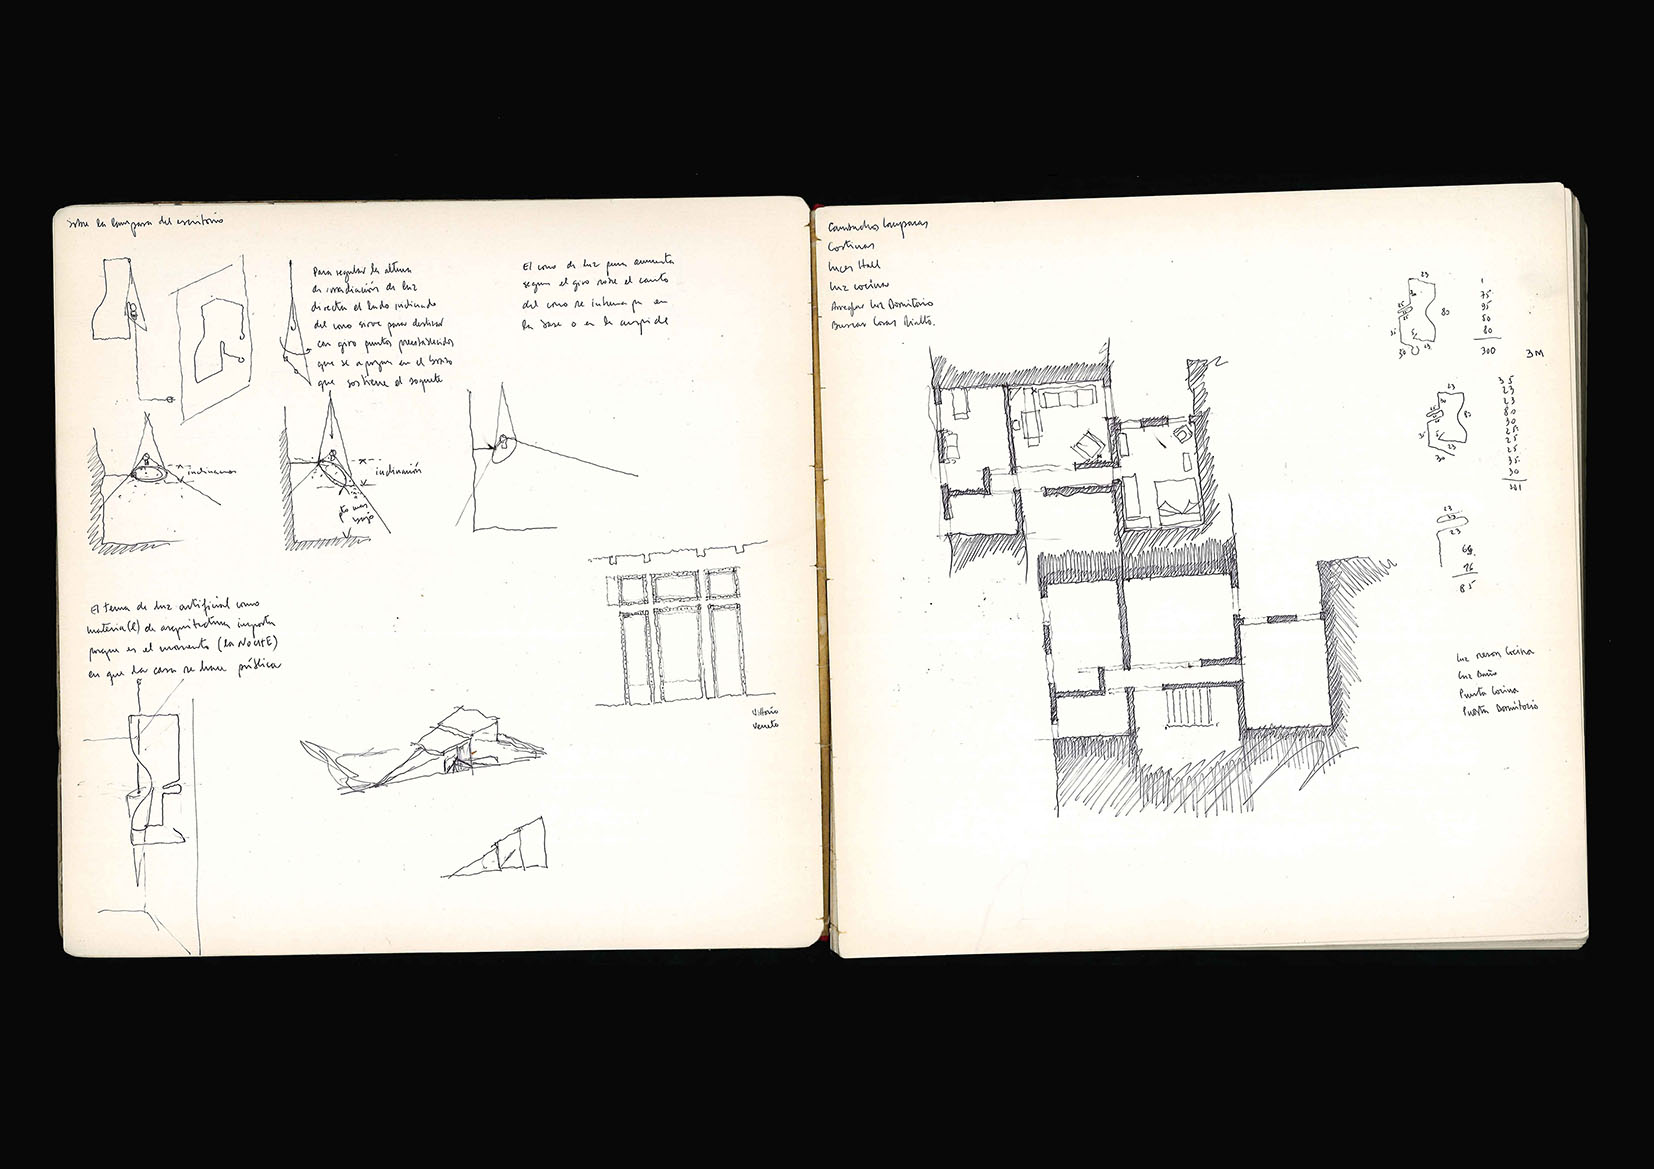 sobre la lampara del escritorio
Para regular la altura
de irradiación de luz
directa el lado inclinado
del cono sirve para deslizar
con giro puntos preestablecidos
que se apoyan en el brazo
que sostiene el soquete
El cono de luz aumenta
segun el giro sobre el canto
del cono se
la base o en la cuspide
inclinamos
inclinación
pto mas
bajo
El tema de luz artificial como
materia(l) de arquitectura importa
porque es el momento (la NOCHE)
en que la casa se hace pública
Vittorio
Veneto
lamparas
Cortinas
luces Hall
luz cocina
Arreglar luz Dormitorio
Buscar cosas Rialto.
23
80
30
23
75
95
50
80
300
3M
23
80
23
30
35
23
23
80
30
25
25
35
30
23
23
16
85
luz cocina
luz Baño
Puerta cocina
Puerta Dormitorio